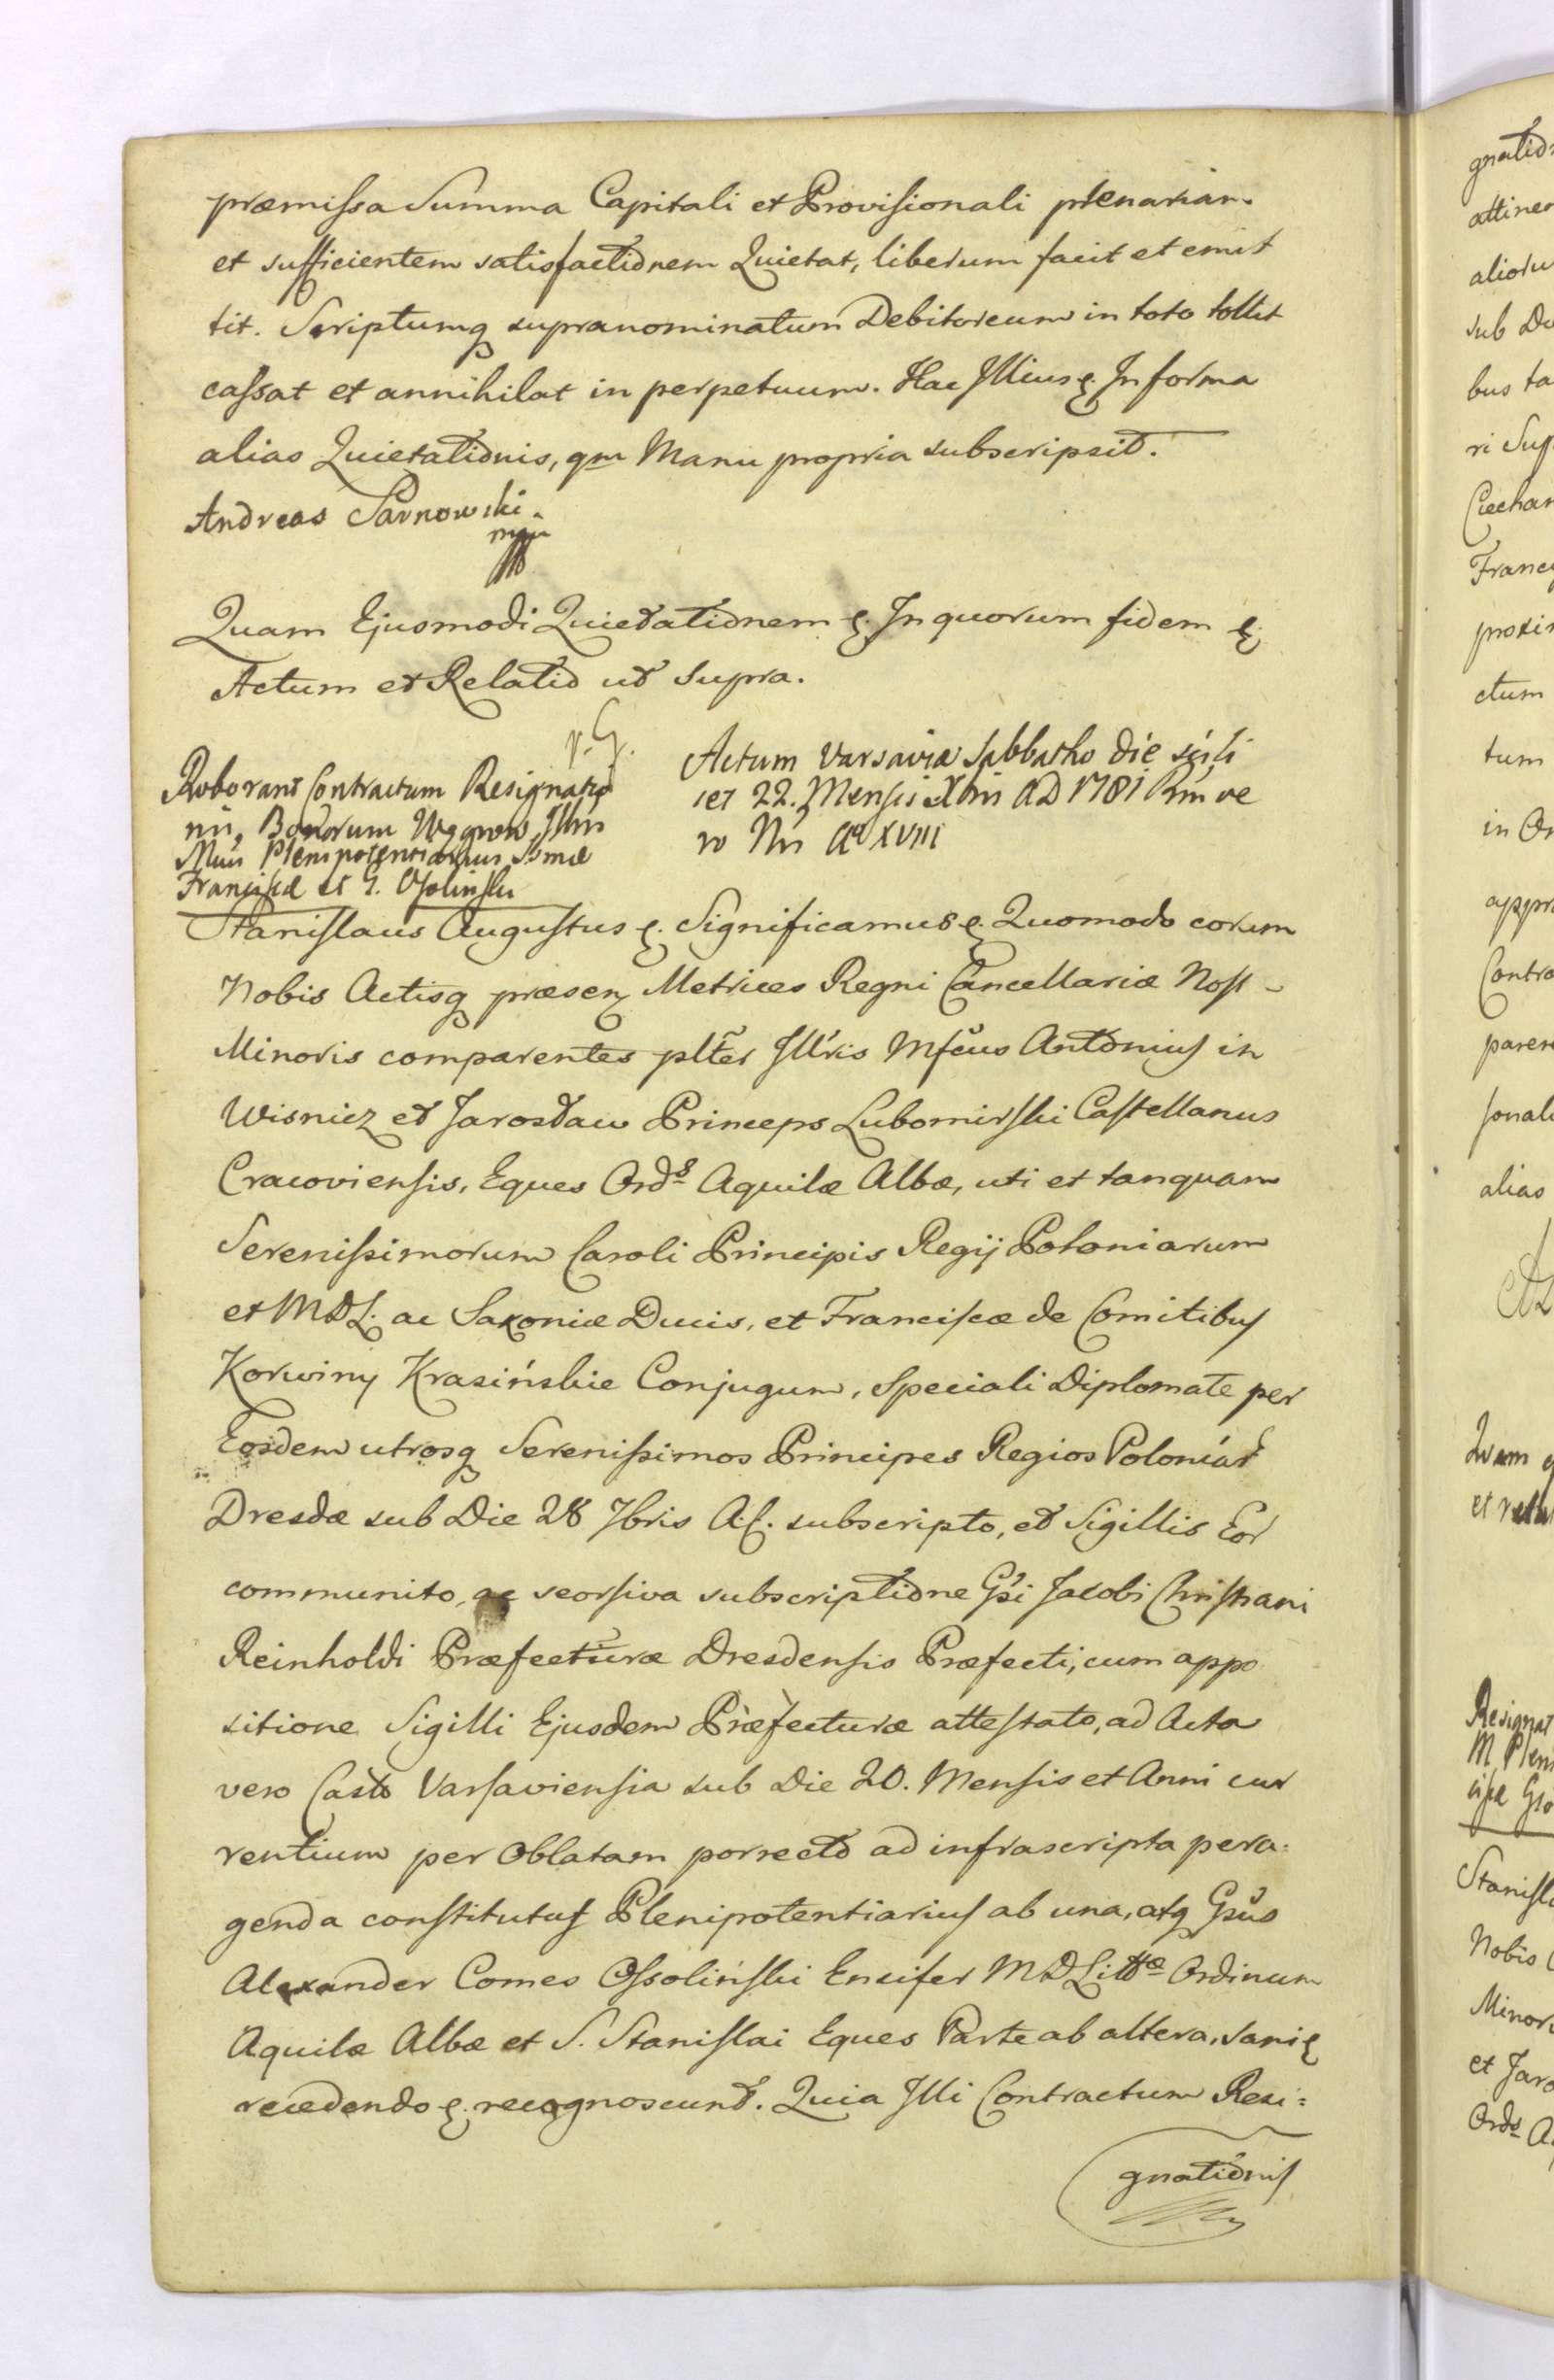 præmissa Summa Capitali et Provisionali plenariam
et sufficientem satisfactionem Quietat, liberum facit et emit
tit. Scriptumq supranominatum Debitoreum in toto tollit
cassat et annihilat in perpetuum. Hac Illius ę. In forma
alias Quietationis, qm Manu propria subscripsit.
Andreas Sarnowski.
mpp
Quam Ejusmodi Quietationem ę. In quorum fidem ę.
Actum et Relatio ut supra.
Roborant Contractum Resignatio
nis, Bonorum Węgrow Illris
Mcus Plenipotentiarius
Franciscæ et G. Ossolinski
Actum Varsaviæ Sabbatho die
22. Mensis Xbris AD 1781 Rni ve
ro Nri Ao XVIII
Stanislaus Augustus ę. Significamus ę. Quomodo coram
Nobis Actisq præsen Metrices Regni Cancellariæ Nost
Minoris comparentes plter Illris Mfcus Antonius in
Wisnicz et Jarosław Princeps Lubomirski Castellanus
Cracoviensis, Eques Ords Aquilæ Albæ, uti et tanquam
Serenissimorum Caroli Principis Regij Poloniarum
et MDL. ac Saxoniæ Ducis, et Franciscæ de Comitibus
Korwiny Krasińskie Conjugum, Speciali Diplomate per
Eosdem utrosq Serenissimos Principes Regios Poloniar
Dresdæ sub Die 28 7bris A.C. subscripto, et Sigillis Eor
communito, ac seorsiva subscriptione Gsi Jacobi Christiani
Reinholdi Præfecturæ Dresdensis Præfecti, cum appo
sitione Sigilli Ejusdem Præfecturæ attestato, ad Acta
vero Casto Varsaviensia sub Die 20. Mensis et Anni cur
rentium per Oblatam porrecto ad infrascripta pera=
genda constitutus Plenipotentiarius ab una, atq Gsus
Alexander Comes Ossoliński Ensifer MDLittæ Ordinum
Aquilæ Albæ et S. Stanislai Eques Parte ab altera, sani ę
recedendo ę. recognoscunt. Quia Illi Contractum Resi=
gnationis
gnatio
attinen
alioru
sub Du
bus ta
ri Sup
Ciechan
Franc
proxi
ctum
tum
in Or
appr
Contra
paren
sonali
alias
Quam
et rela
Resignat
M Plen
Stanisl
Nobis
Minor
et Jaro
Ords A